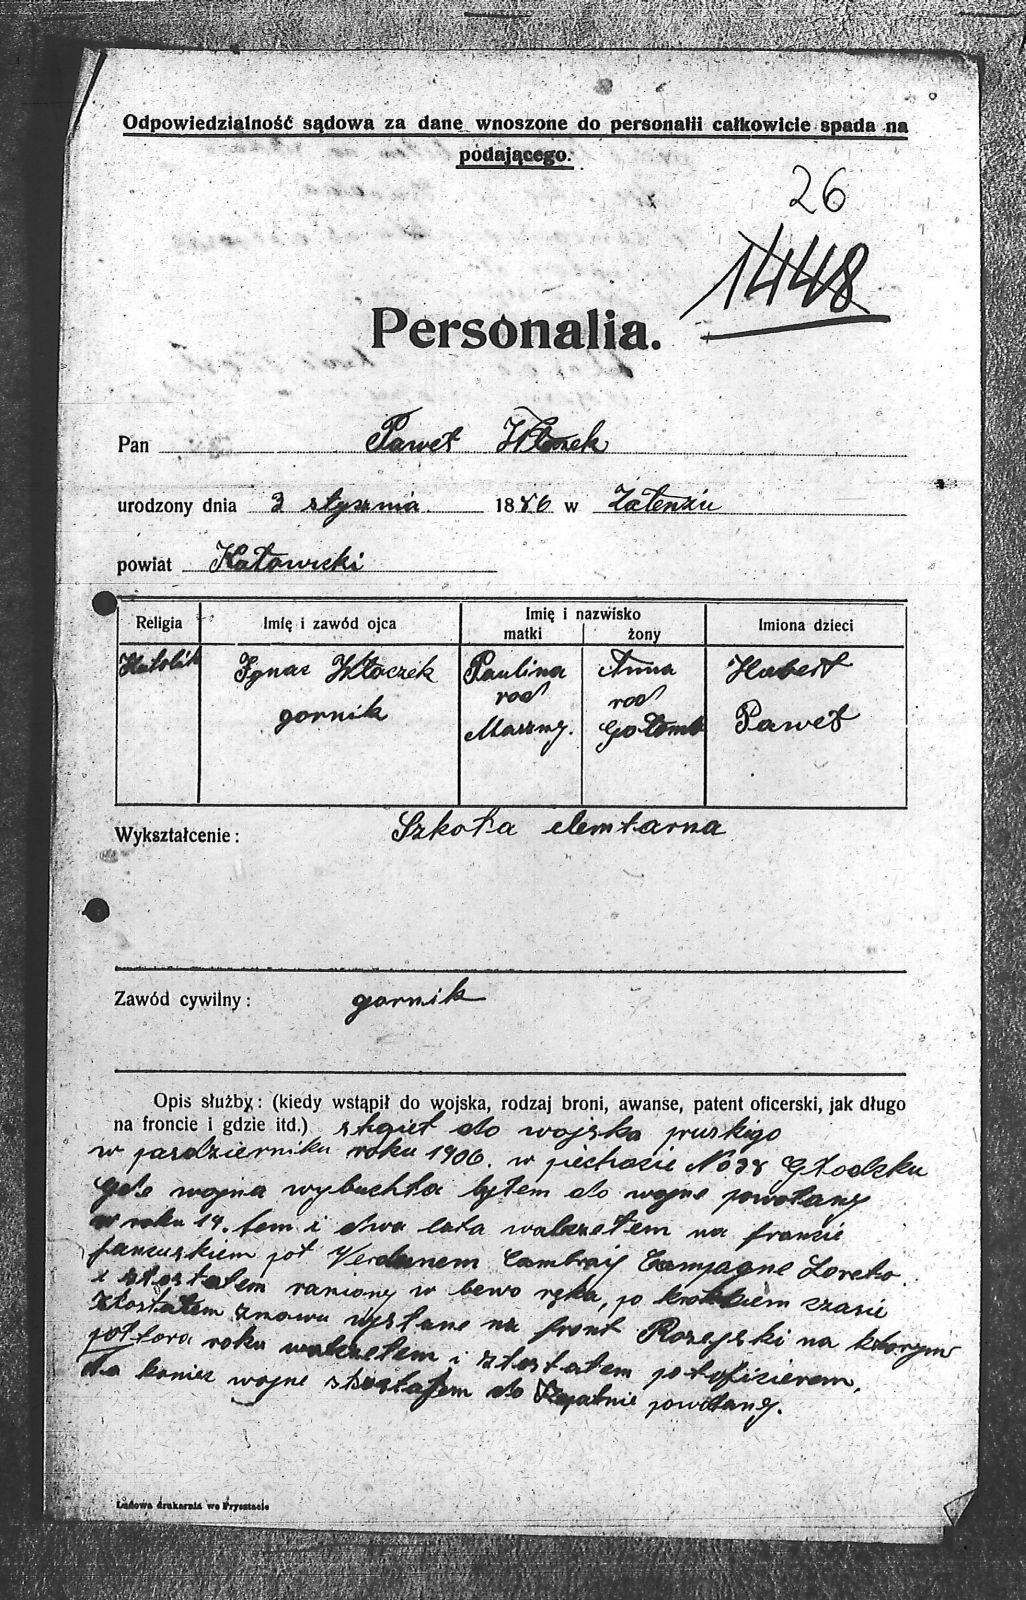 Odpowiedzialność sądowa za dane wnoszone do personalii całkowicie spada na
podającego.
26
1448
Personalia.
Pan Paweł
urodzony dnia 3 stycznia 1886 w Załenżu
powiat Katowicki
Religia Imię i zawód ojca Imię i nazwisko matki żony Imiona dzieci
Katolik Ignac Włoczek Paulina Anna Hubert
gornik rod rod Paweł
Gołomb
Wykształcenie: Szkoła elemtarna
Zawód cywilny: gornik
Opis służby: (kiedy wstąpił do wojska, rodzaj broni, awanse, patent oficerski, jak długo
na froncie i gdzie itd.) do wojska pruskigo
w pazdzierniku roku 1906. w piechocie No 38
wojna wybuchła byłem do wojne powołany
w roku 14. tem i dwa lata walczełem na froncie
pot Verdunem Cambraij Campagne Loreto
i zostałem raniony w lewo ręka, po krotkiem czasie
zostałem znowu na front Rosejski na ktorym
połtora roku walczełem i zostałem potofizierem.
koniec wojne do powołany.
Ludowa drukarnia we Frysztacie